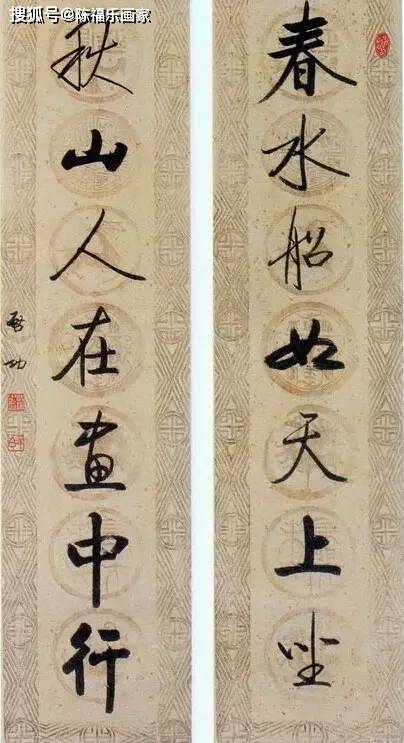 搜狐号@陈福乐画家
春水船如天上坐
秋山人在画中行
启功